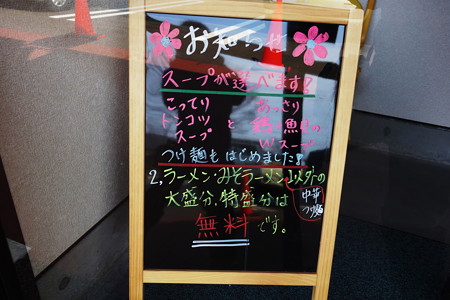 お知らせ
スープが選べます?
こってり
トンコツ
スープ
と
あっさり
鶏と魚貝の
Wスープ
つけ麺もはじめました!!
2,ラーメン・みそラーメン以外の
大盛分、特盛分は
中華
つけ麺
無料です。